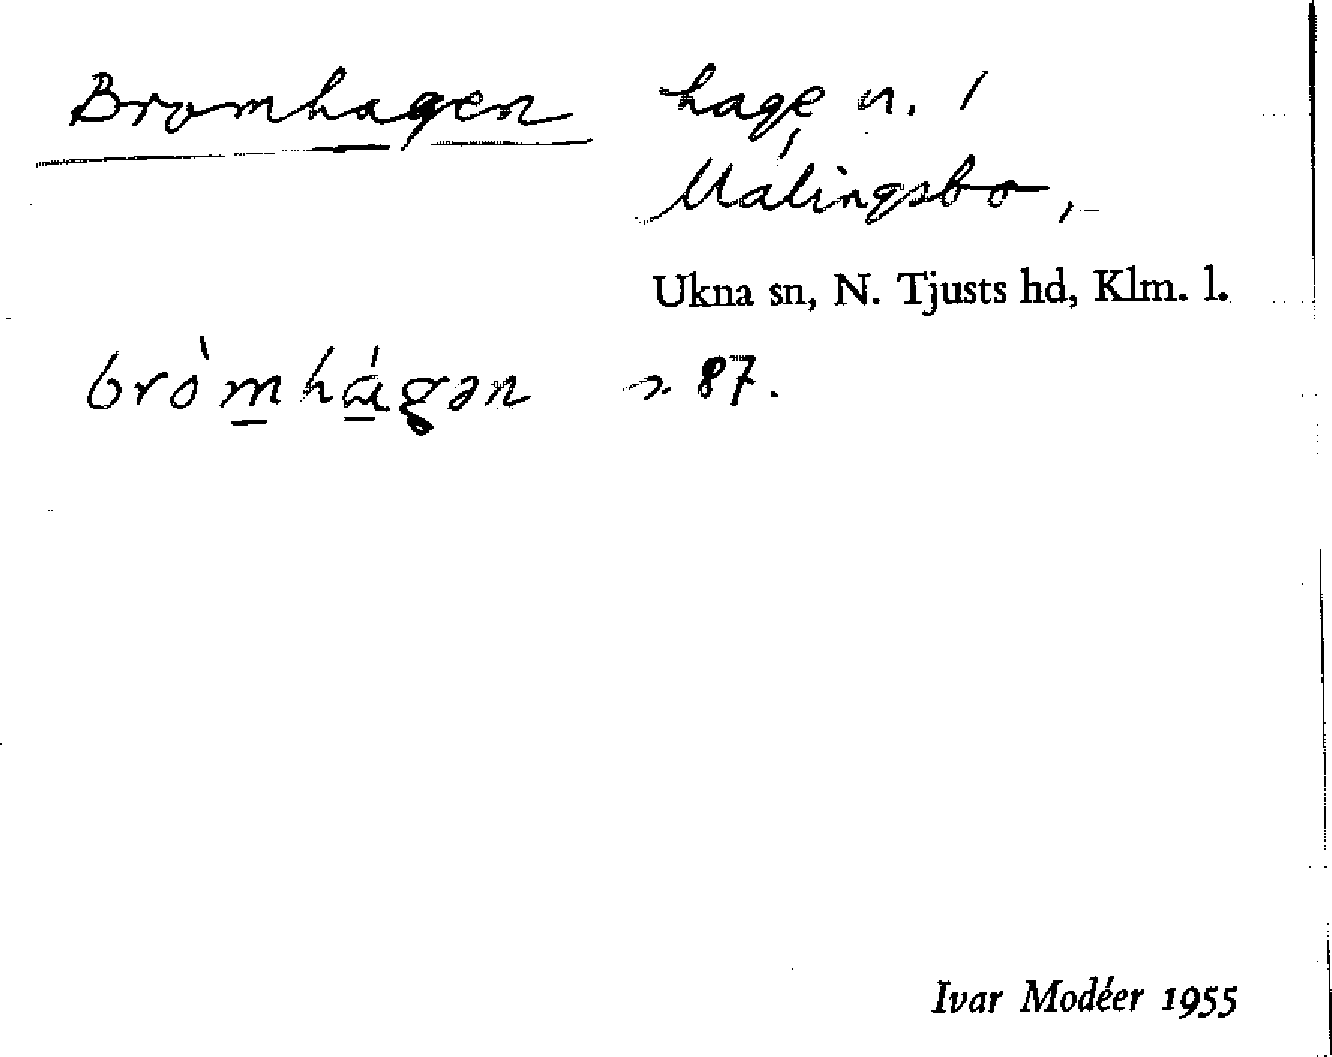 Bromhagen hage n. 1
Målingsbo,
Ukna sn, N. Tjusts hd, Klm. l.
bròmhágən 87.
Ivar Modéer 1955